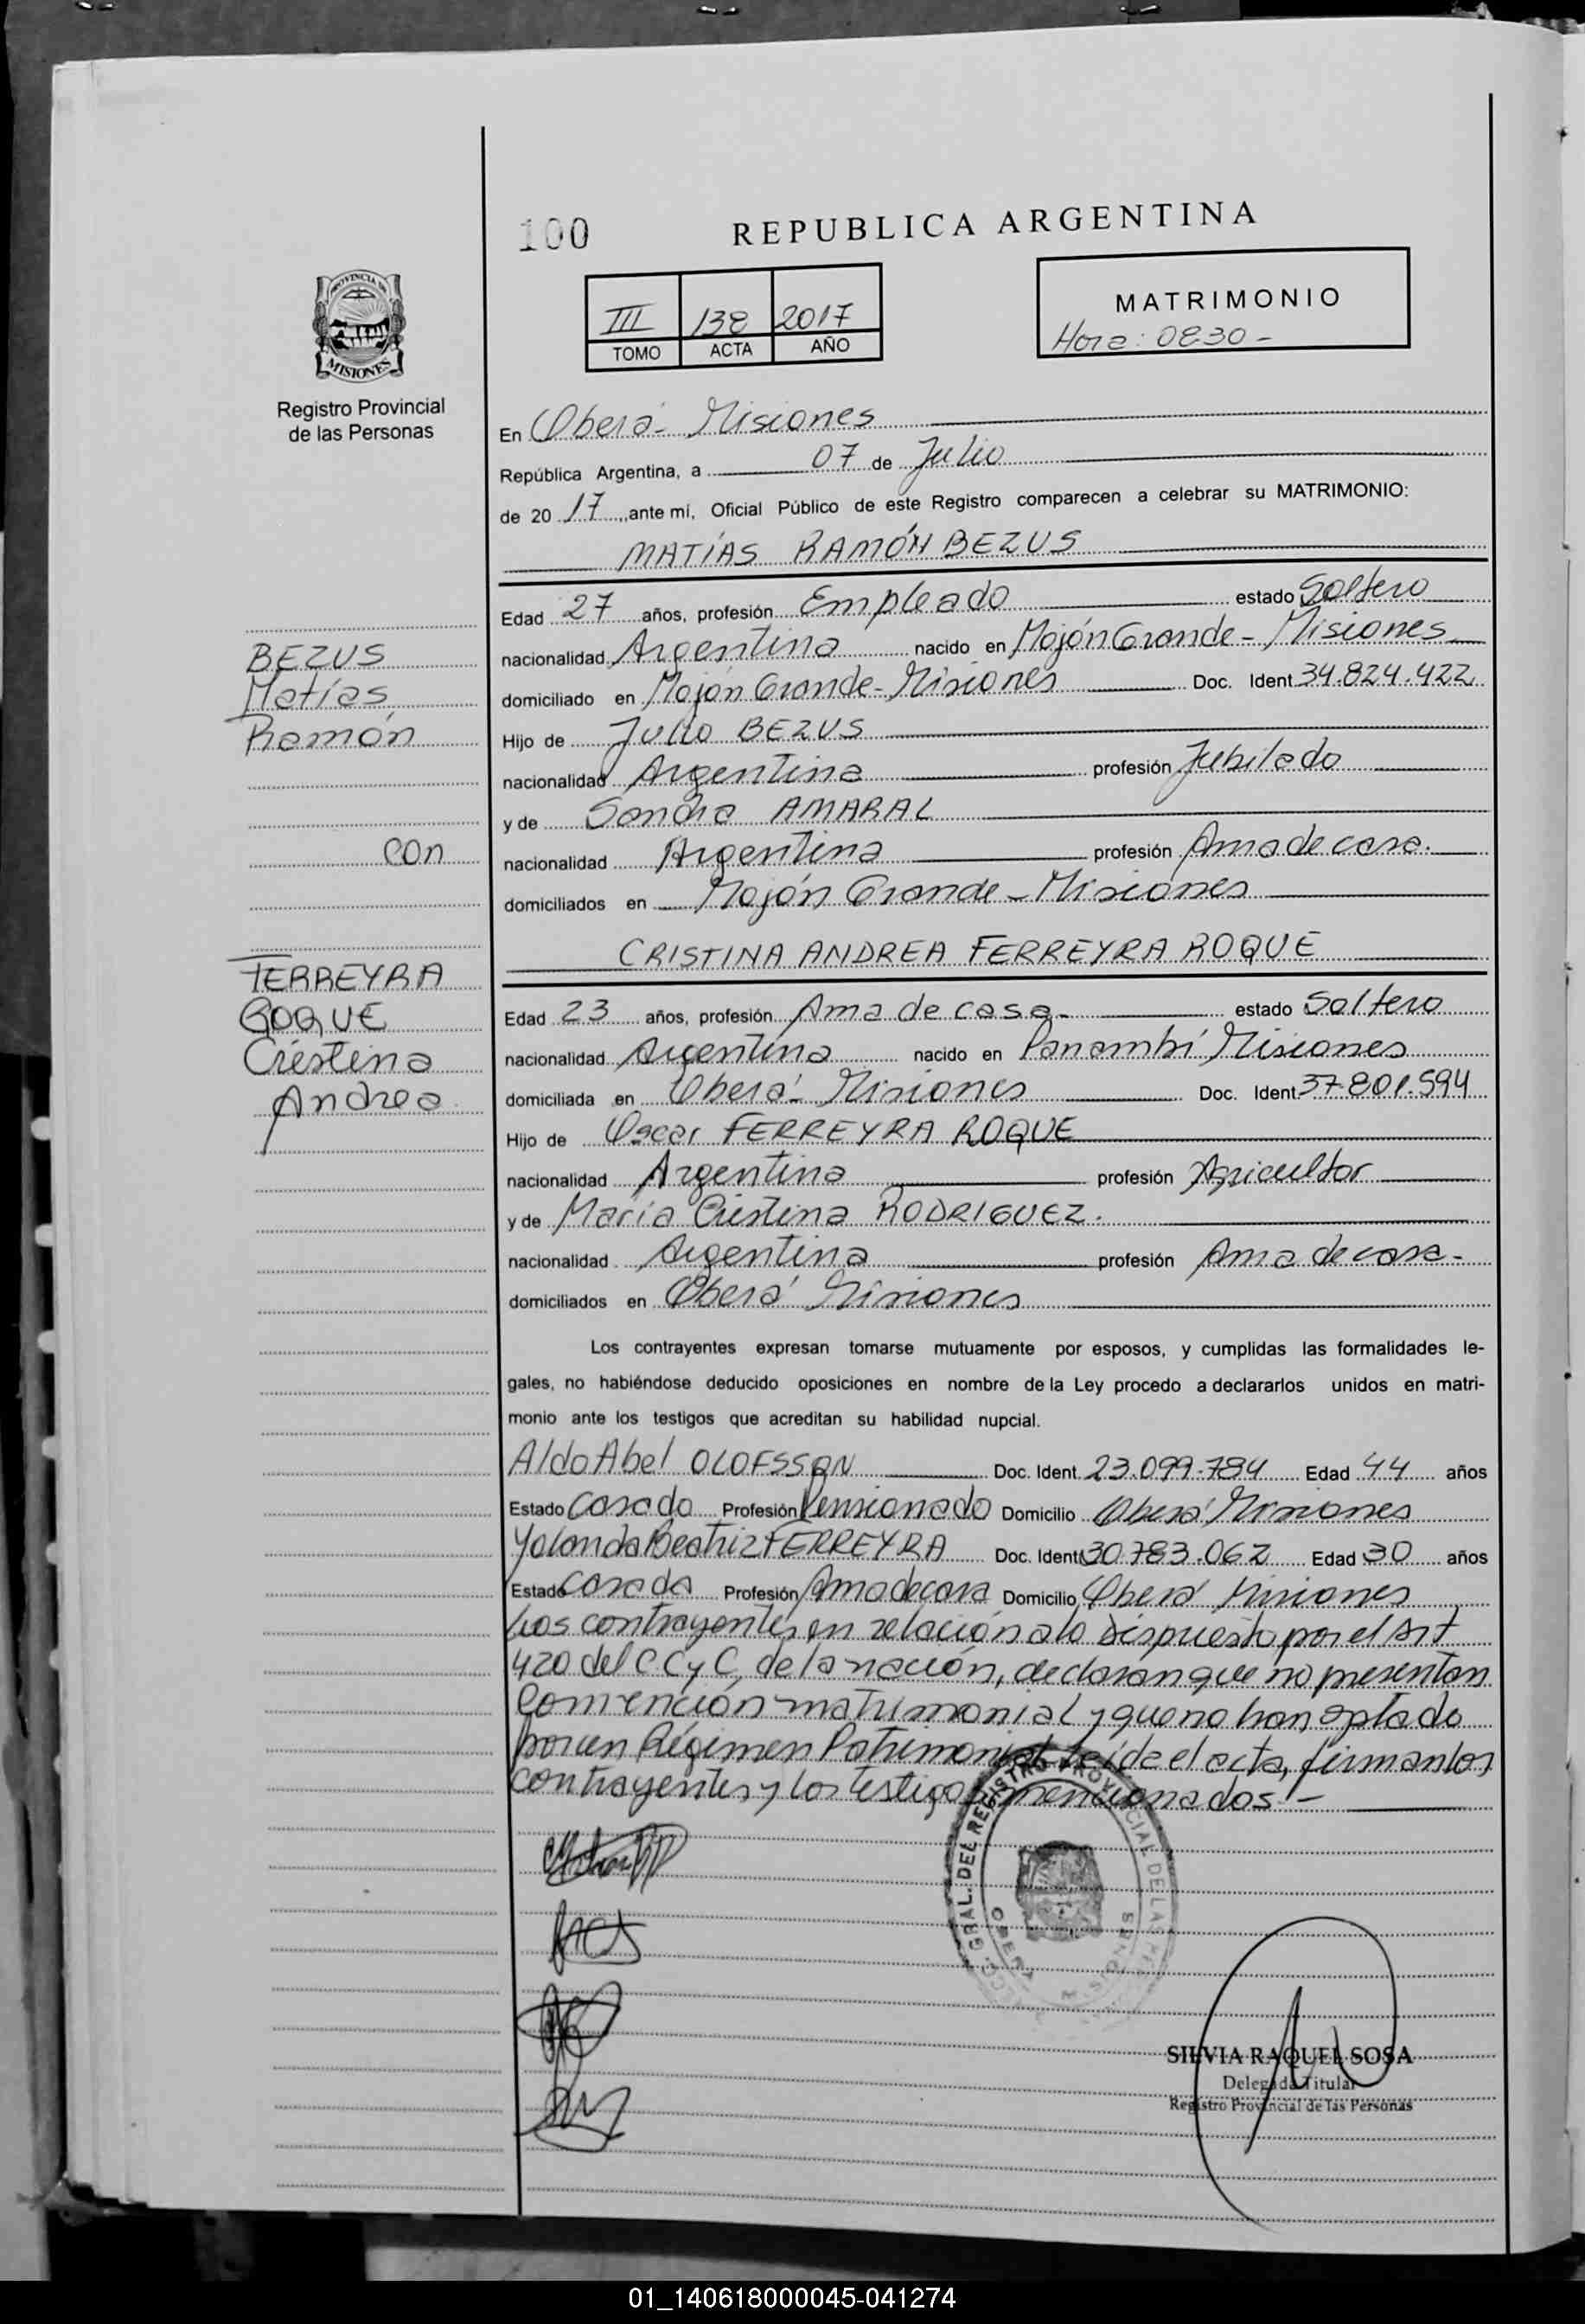 100
REPUBLICA ARGENTINA
III 138 2017
TOMO ACTA AÑO
MATRIMONIO
Hora: 0830 -
PROVINCIA DE
MISIONES
Registro Provincial
de las Personas
En Oberá - Misiones
República Argentina, a 07 de Julio
de 20 17, ante mí, Oficial Público de este Registro comparecen a celebrar su MATRIMONIO:
MATÍAS RAMÓN BEZUS
Edad 27 años, profesión Empleado estado Soltero
nacionalidad Argentina nacido en Mojón Grande - Misiones
domiciliado en Mojón Grande - Misiones Doc. Ident 34.824.422
Hijo de Julio BEZUS
nacionalidad Argentina profesión Jubilado
y de Sandra AMARAL
nacionalidad Argentina profesión Ama de casa.
domiciliados en Mojón Grande - Misiones
BEZUS
Matías
Ramón
con
FERREYRA
ROQUE
Cristina
Andrea
CRISTINA ANDREA FERREYRA ROQUE
Edad 23 años, profesión Ama de casa - estado Soltero
nacionalidad Argentina nacido en Panambí Misiones
domiciliada en Oberá - Misiones Doc. Ident 37.801.594
Hijo de Oscar FERREYRA ROQUE
nacionalidad Argentina profesión Agricultor
y de María Cristina RODRIGUEZ.
nacionalidad Argentina profesión Ama de casa -
domiciliados en Oberá Misiones
Los contrayentes expresan tomarse mutuamente por esposos, y cumplidas las formalidades le-
gales, no habiéndose deducido oposiciones en nombre de la Ley procedo a declararlos unidos en matri-
monio ante los testigos que acreditan su habilidad nupcial.
Aldo Abel OLOFSSON Doc. Ident. 23.099.784 Edad 44 años
Estado Casado Profesión Pensionado Domicilio Oberá Misiones
Yolanda Beatriz FERREYRA Doc. Ident 30.783.062 Edad 30 años
Estado Casada Profesión Ama de casa Domicilio Oberá Misiones
Los contrayentes, en relación a lo dispuesto por el Art
420 del C.C y C, de la nación, declaran que no presentan
Convención matrimonial y que no han optado
por un Régimen Patrimonial. Leída el acta, firman los
contrayentes y los testigos mencionados. -
GRAL. DEL REGISTRO PROVINCIAL DE LAS
OBERÁ MISIONES
SILVIA RAQUEL SOSA
Delegada Titular
Registro Provincial de las Personas
01_140618000045-041274